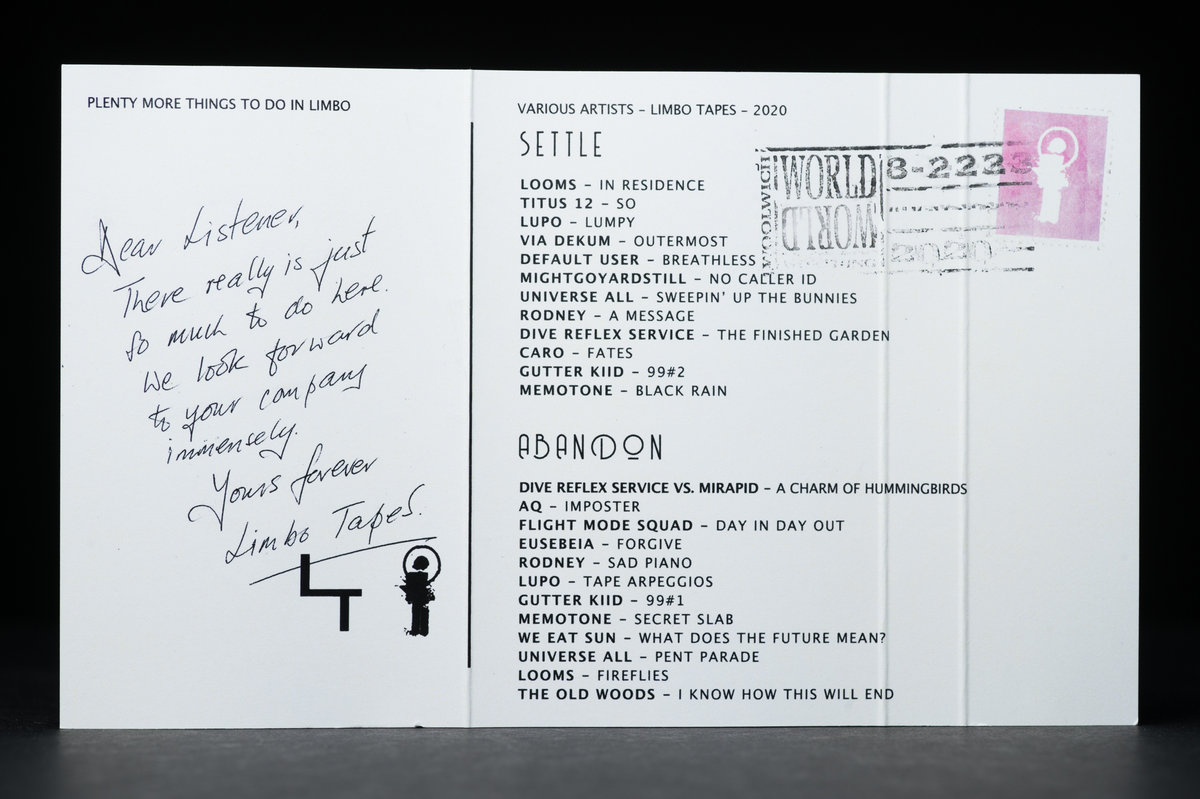 PLENTY MORE THINGS TO DO IN LIMBO
Dear Listener,
There really is just
so much to do here.
We look forward
to your company
immensely.
Yours forever
Limbo Tapes.
LT
VARIOUS ARTISTS – LIMBO TAPES – 2020
SETTLE
LOOMS – IN RESIDENCE
TITUS 12 – SO
LUPO – LUMPY
VIA DEKUM – OUTERMOST
DEFAULT USER – BREATHLESS
MIGHTGOYARDSTILL – NO CALLER ID
UNIVERSE ALL – SWEEPIN' UP THE BUNNIES
RODNEY – A MESSAGE
DIVE REFLEX SERVICE – THE FINISHED GARDEN
CARO – FATES
GUTTER KIID – 99#2
MEMOTONE – BLACK RAIN
WOOLWICH
WORLD
WORLD
8-2223
ABANDON
DIVE REFLEX SERVICE VS. MIRAPID – A CHARM OF HUMMINGBIRDS
AQ – IMPOSTER
FLIGHT MODE SQUAD – DAY IN DAY OUT
EUSEBEIA – FORGIVE
RODNEY – SAD PIANO
LUPO – TAPE ARPEGGIOS
GUTTER KIID – 99#1
MEMOTONE – SECRET SLAB
WE EAT SUN – WHAT DOES THE FUTURE MEAN?
UNIVERSE ALL – PENT PARADE
LOOMS – FIREFLIES
THE OLD WOODS – I KNOW HOW THIS WILL END